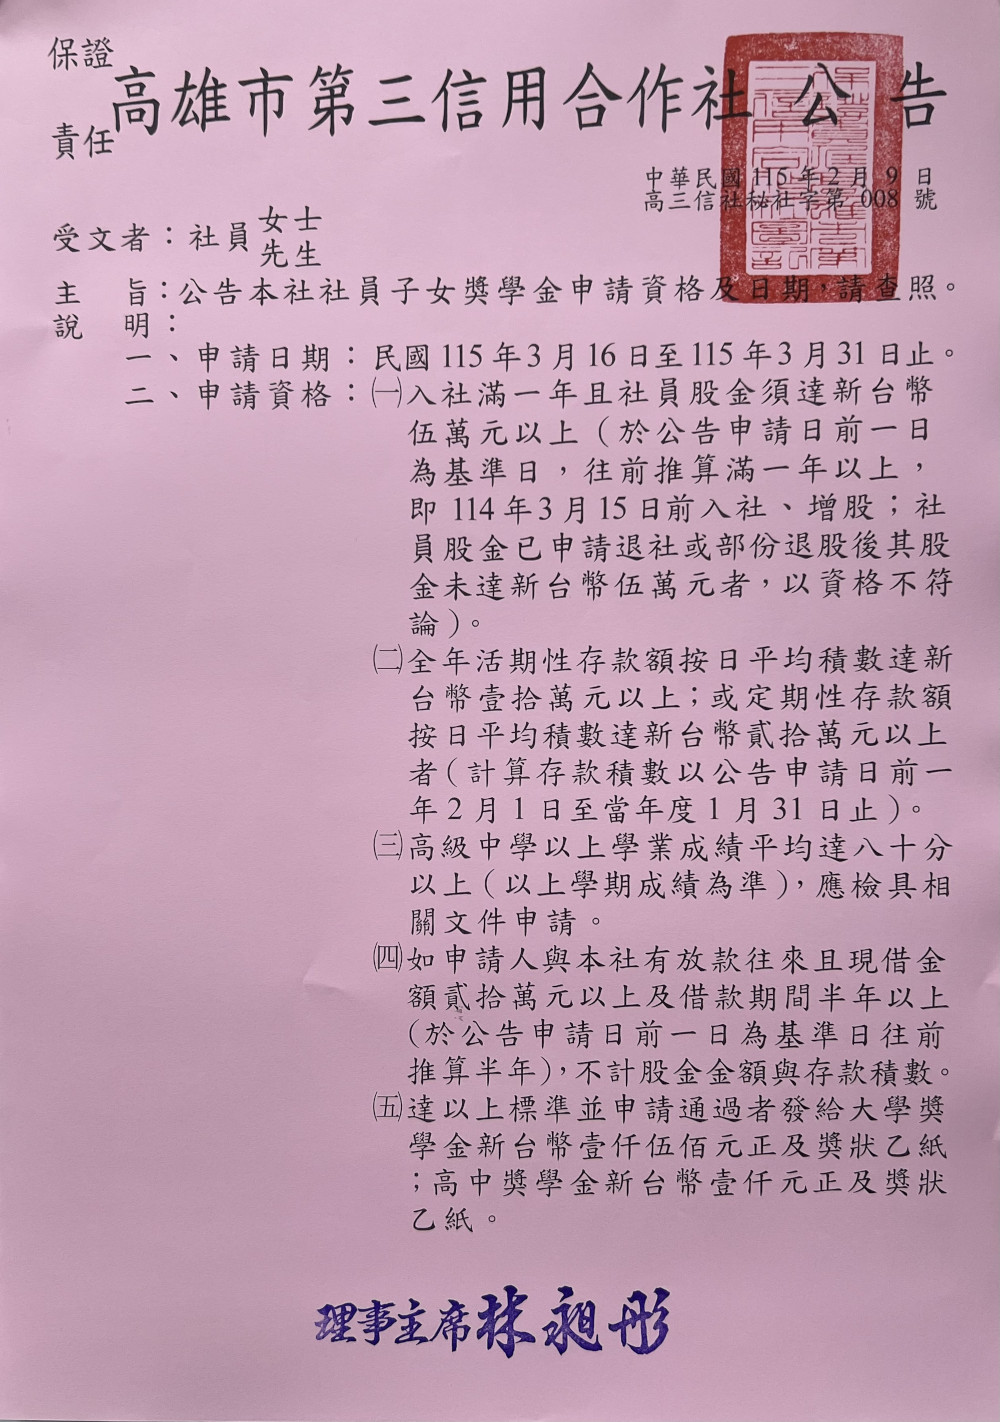 保證
責任
高雄市第三信用合作社 公告
中華民國 115 年 2 月 9 日
高三信社秘社字第 008 號
受文者：社員 女士
先生
主　旨：公告本社社員子女獎學金申請資格及日期，請查照。
說　明：
一、申請日期：民國 115 年 3 月 16 日至 115 年 3 月 31 日止。
二、申請資格：㈠入社滿一年且社員股金須達新台幣
伍萬元以上（於公告申請日前一日
為基準日，往前推算滿一年以上，
即 114 年 3 月 15 日前入社、增股；社
員股金已申請退社或部份退股後其股
金未達新台幣伍萬元者，以資格不符
論）。
㈡全年活期性存款額按日平均積數達新
台幣壹拾萬元以上；或定期性存款額
按日平均積數達新台幣貳拾萬元以上
者（計算存款積數以公告申請日前一
年 2 月 1 日至當年度 1 月 31 日止）。
㈢高級中學以上學業成績平均達八十分
以上（以上學期成績為準），應檢具相
關文件申請。
㈣如申請人與本社有放款往來且現借金
額貳拾萬元以上及借款期間半年以上
（於公告申請日前一日為基準日往前
推算半年），不計股金金額與存款積數。
㈤達以上標準並申請通過者發給大學獎
學金新台幣壹仟伍佰元正及獎狀乙紙
；高中獎學金新台幣壹仟元正及獎狀
乙紙。
理事主席 林昶彤